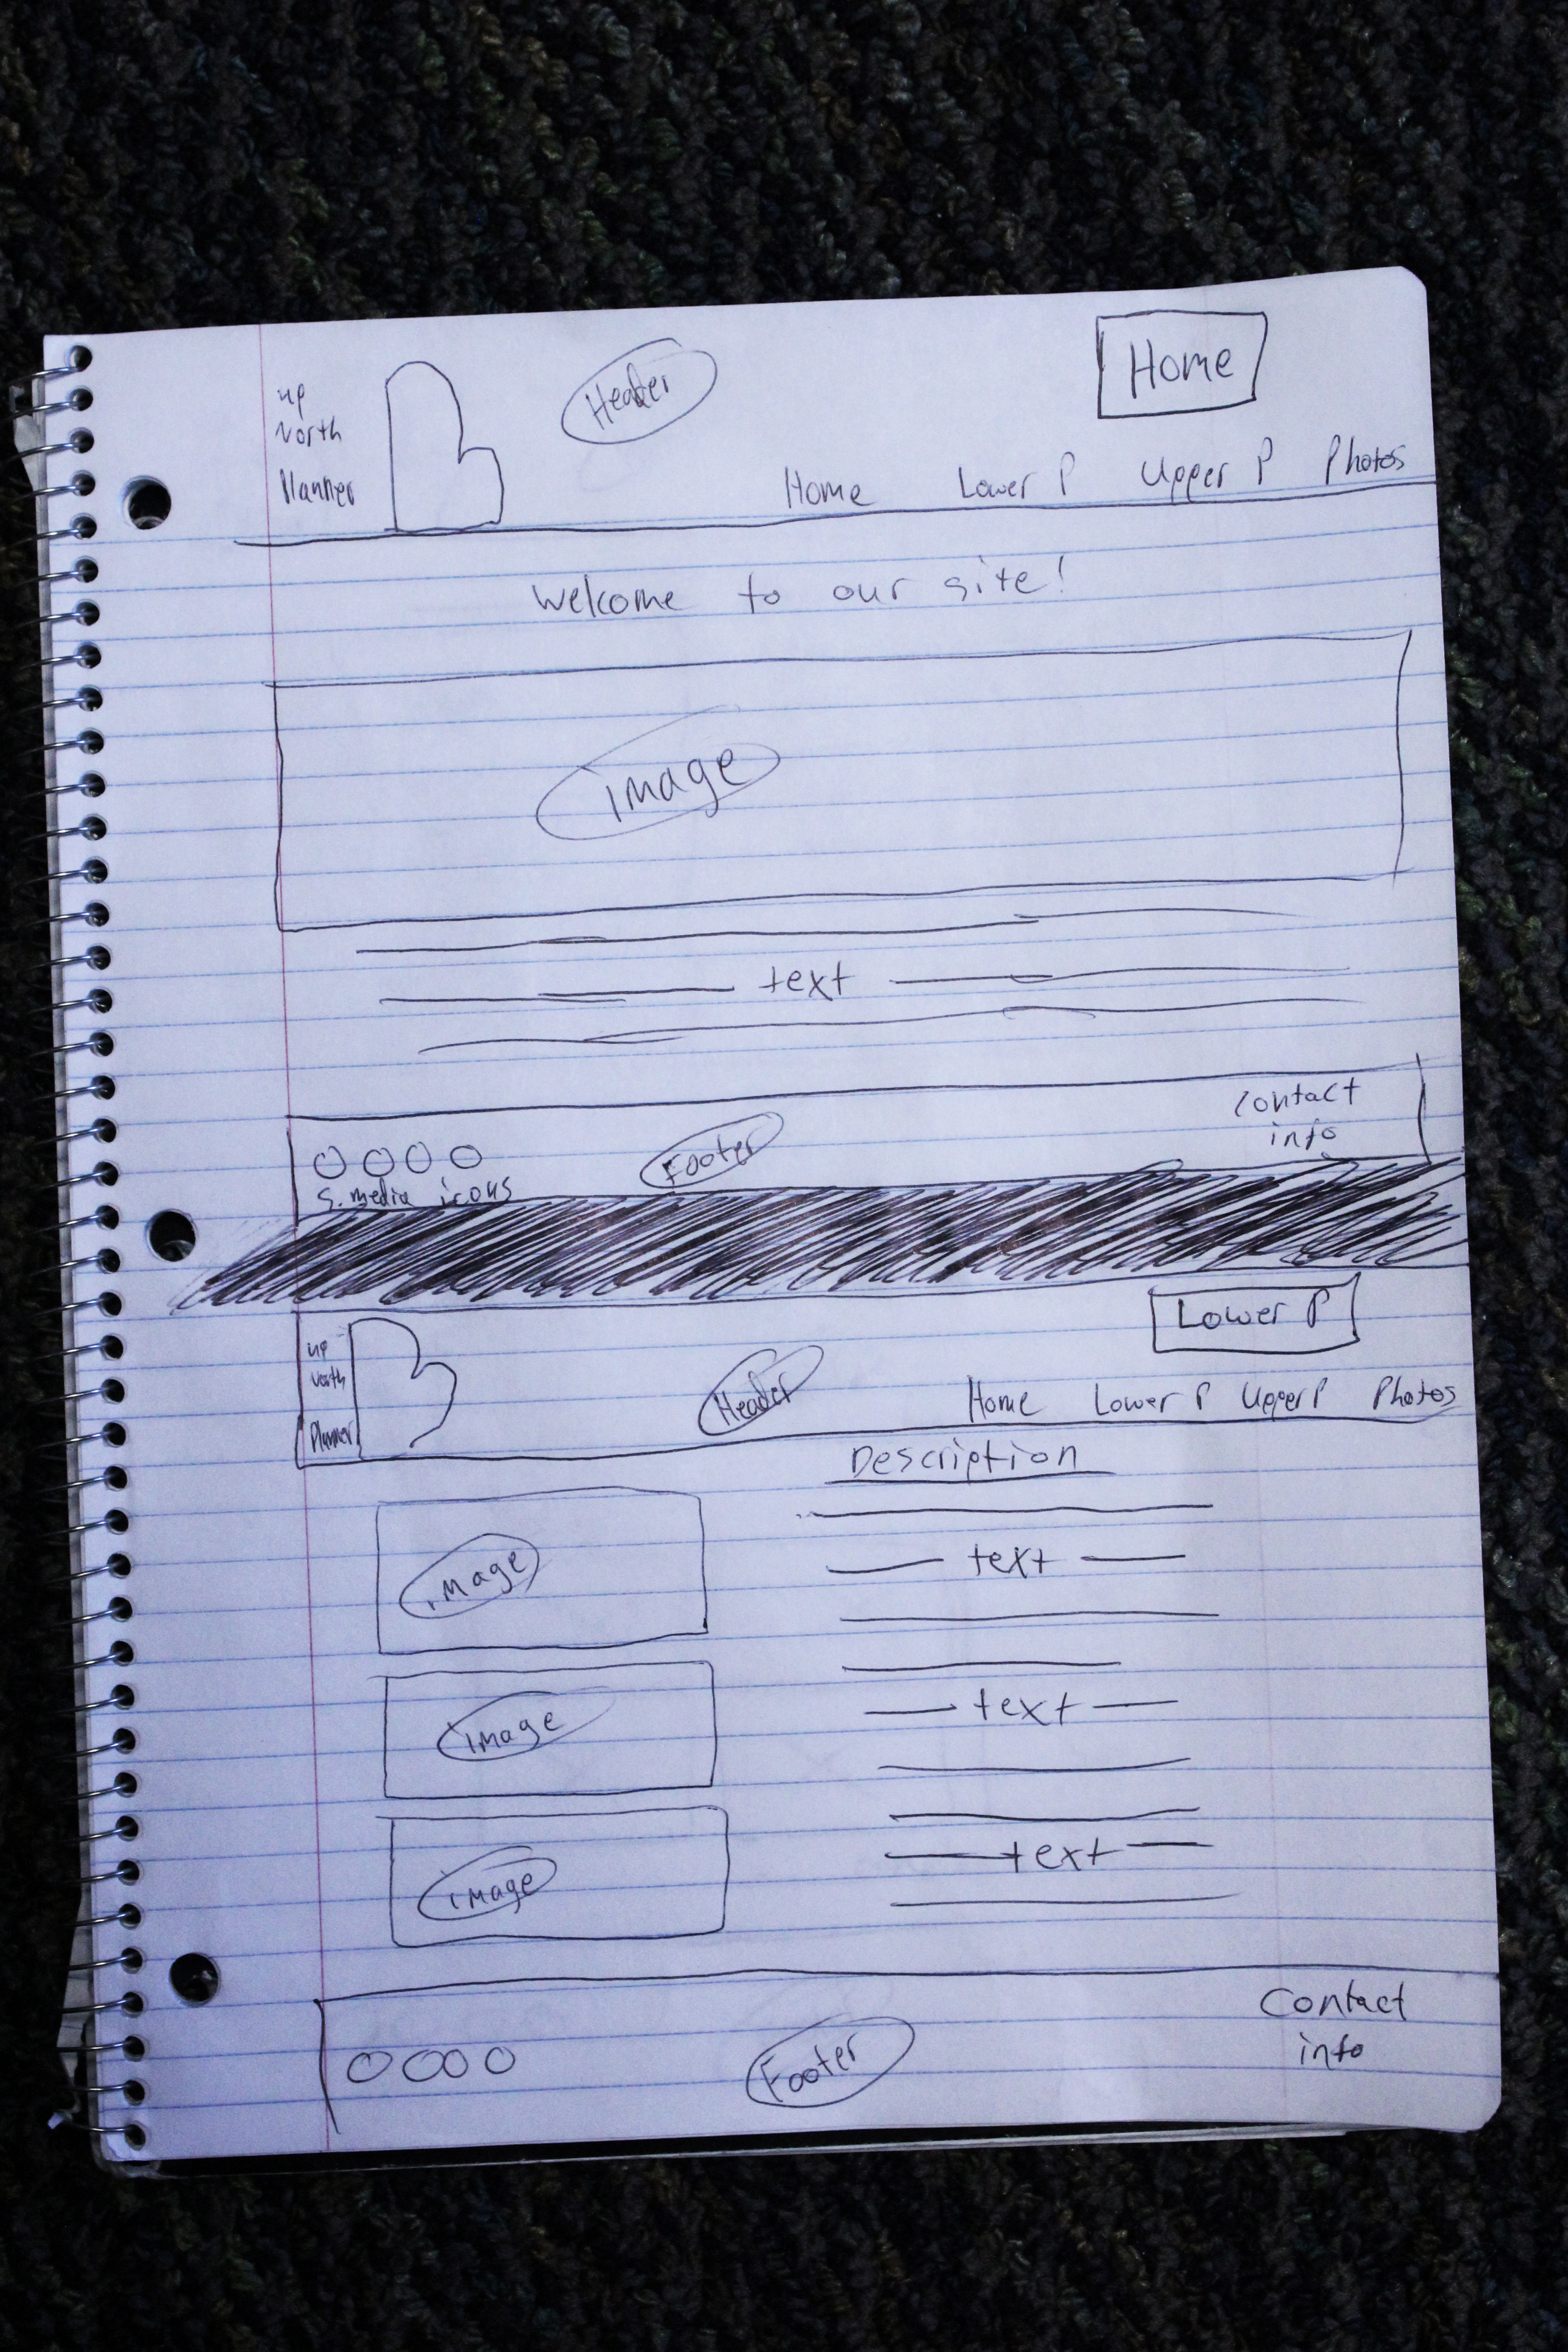 Home
up
North
Planner
Header
Home Lower P Upper P Photos
Welcome to our site!
image
text
Contact
info
Footer
S. media icons
Lower P
up
North
Planner
Header
Home Lower P Upper P Photos
Description
image
text
image
text
image
text
Contact
info
Footer